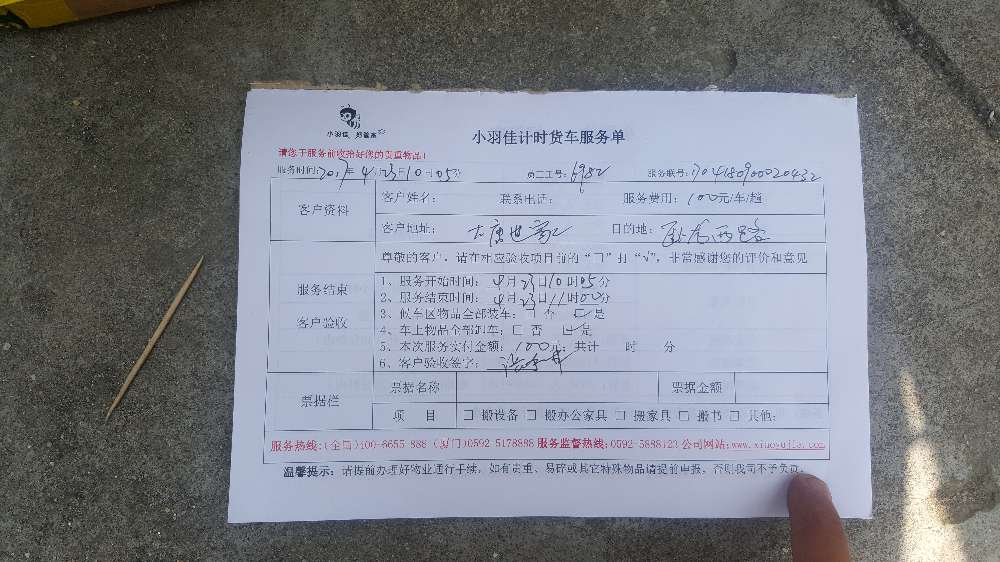 小羽佳 好管家
小羽佳计时货车服务单
请您于服务前收拾好您的贵重物品!
服务时间:2017年4月23日10时05分 员工工号:6982 服务联号:
客户资料 客户姓名: 联系电话: 服务费用:100元/车/趟
客户地址: 大唐世家 目的地:
尊敬的客户,请在相应验收项目前的“口”打“√”,非常感谢您的评价和意见
服务结束
客户验收
1、服务开始时间:4月23日10时05分
2、服务结束时间:4月23日11时00分
3、候车区物品全部装车:□ 否 ☑ 是
4、车上物品全部卸车:□ 否 ☑ 是
5、本次服务实付金额:100元;共计 时 分
6、客户验收签字:
票据栏 票据名称 票据金额
项 目 □ 搬设备 □ 搬办公家具 □ 搬家具 □ 搬书 □ 其他:
服务热线:(全国)400-6655-888 (厦门)0592-5178888 服务监督热线:0592-5888123 公司网站:www.xiaoyujia.com
温馨提示:请提前办理好物业通行手续,如有贵重、易碎或其它特殊物品请提前申报,否则我司不予负责。